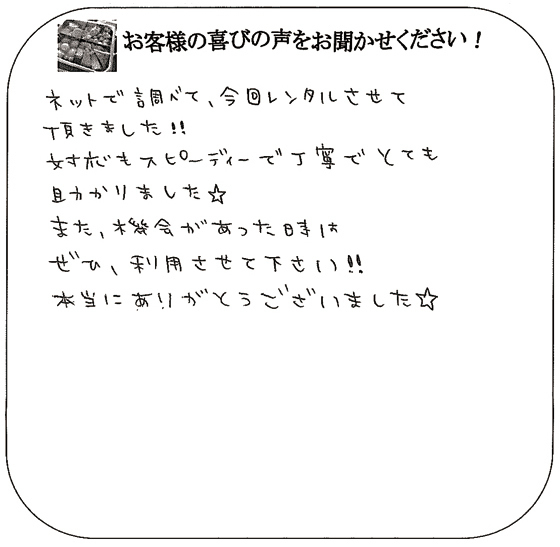 お客様の喜びの声をお聞かせください！
ネットで調べて、今回レンタルさせて
頂きました!!
対応もスピーディーで丁寧でとても
助かりました☆
また、機会があった時は
ぜひ、利用させて下さい!!
本当にありがとうございました☆